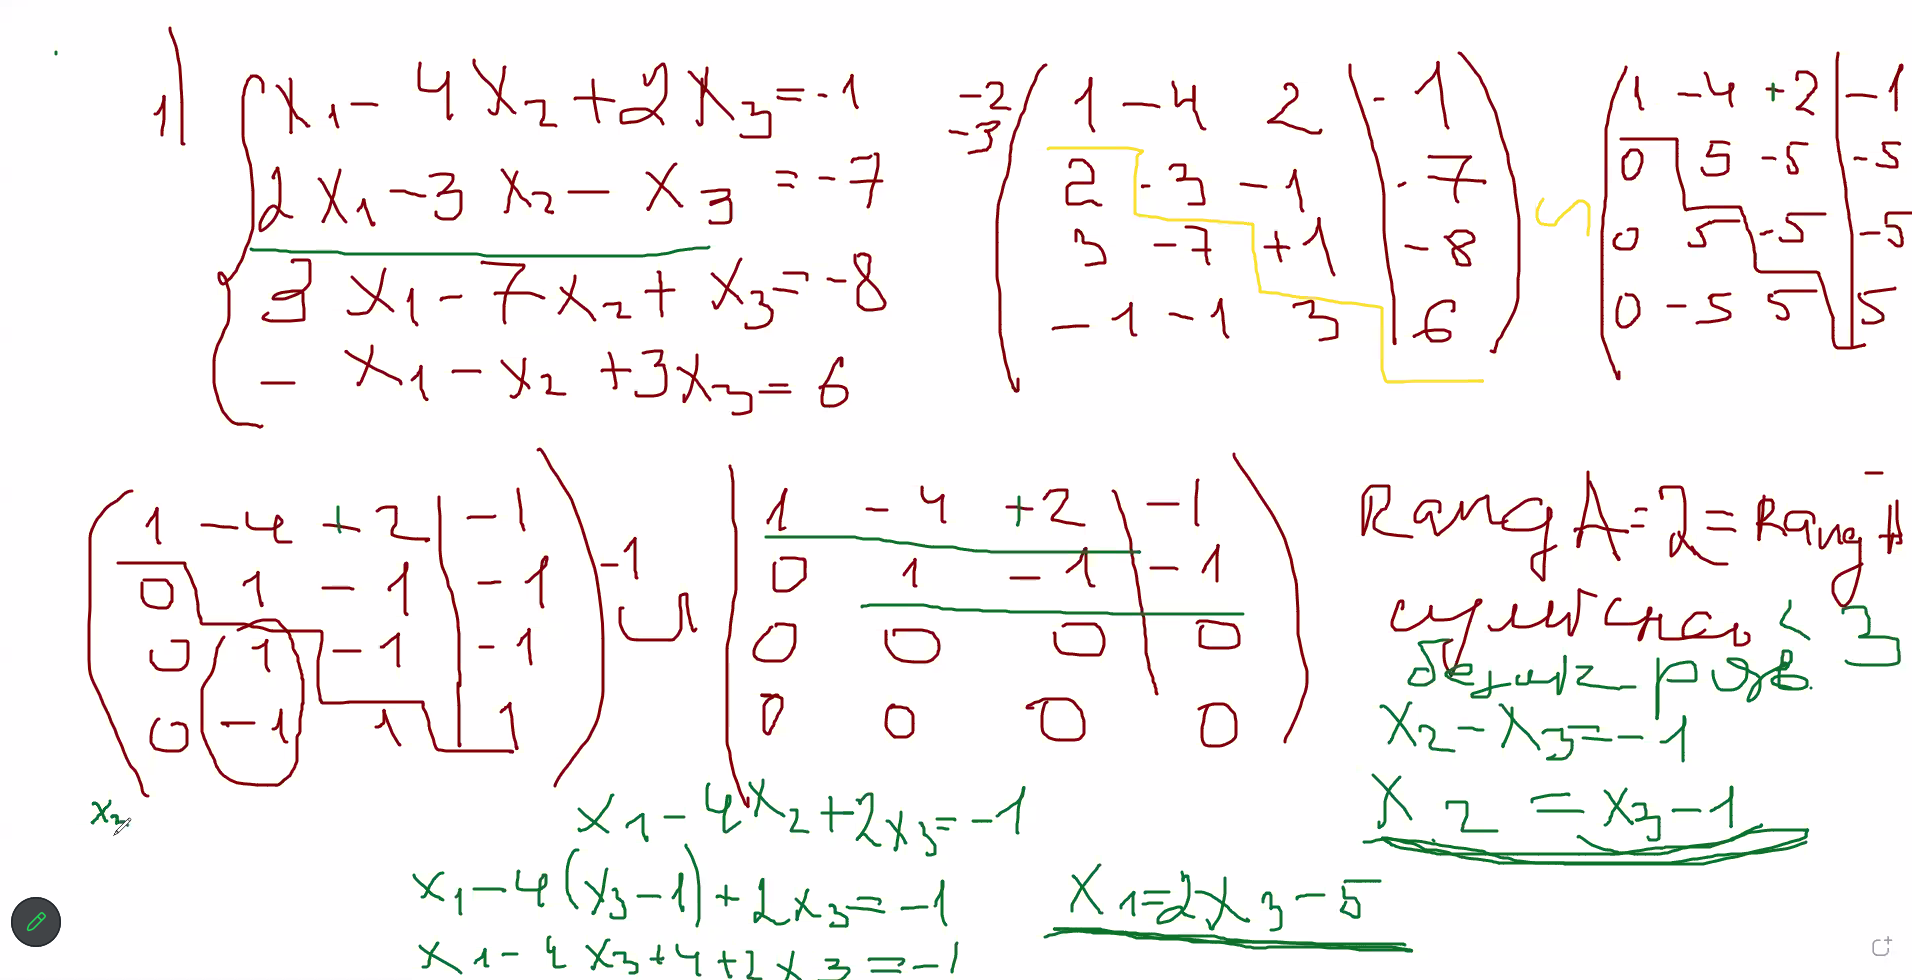 1)
x₁ - 4x₂ + 2x₃ = -1
2x₁ - 3x₂ - x₃ = -7
3x₁ - 7x₂ + x₃ = -8
- x₁ - x₂ + 3x₃ = 6
-2
-3
1 -4 2 | -1
2 -3 -1 | -7
3 -7 +1 | -8
-1 -1 3 | 6
~
1 -4 +2 | -1
0 5 -5 | -5
0 5 -5 | -5
0 -5 5 | 5
1 -4 +2 | -1
0 1 -1 | -1
0 1 -1 | -1
0 -1 1 | 1
-1
~
1 -4 +2 | -1
0 1 -1 | -1
0 0 0 | 0
0 0 0 0
Rang A = 2 = Rang Ā
< 3
x₂ - x₃ = -1
x₂ = x₃ - 1
x₁ - 4x₂ + 2x₃ = -1
x₁ - 4(x₃ - 1) + 2x₃ = -1
x₁ - 4x₃ + 4 + 2x₃ = -1
x₁ = 2x₃ - 5
x₂